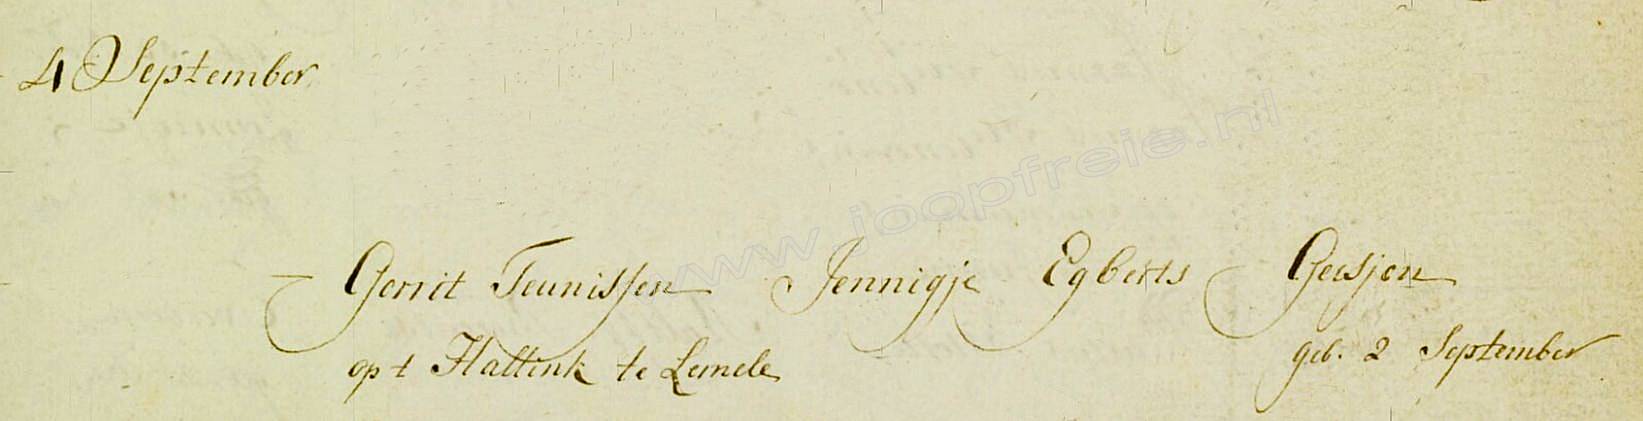 4 September
www.joopfreie.nl
Gerrit Teunissen Jennigje Egberts Geesjen
op t Haltink te Lemele geb. 2 September